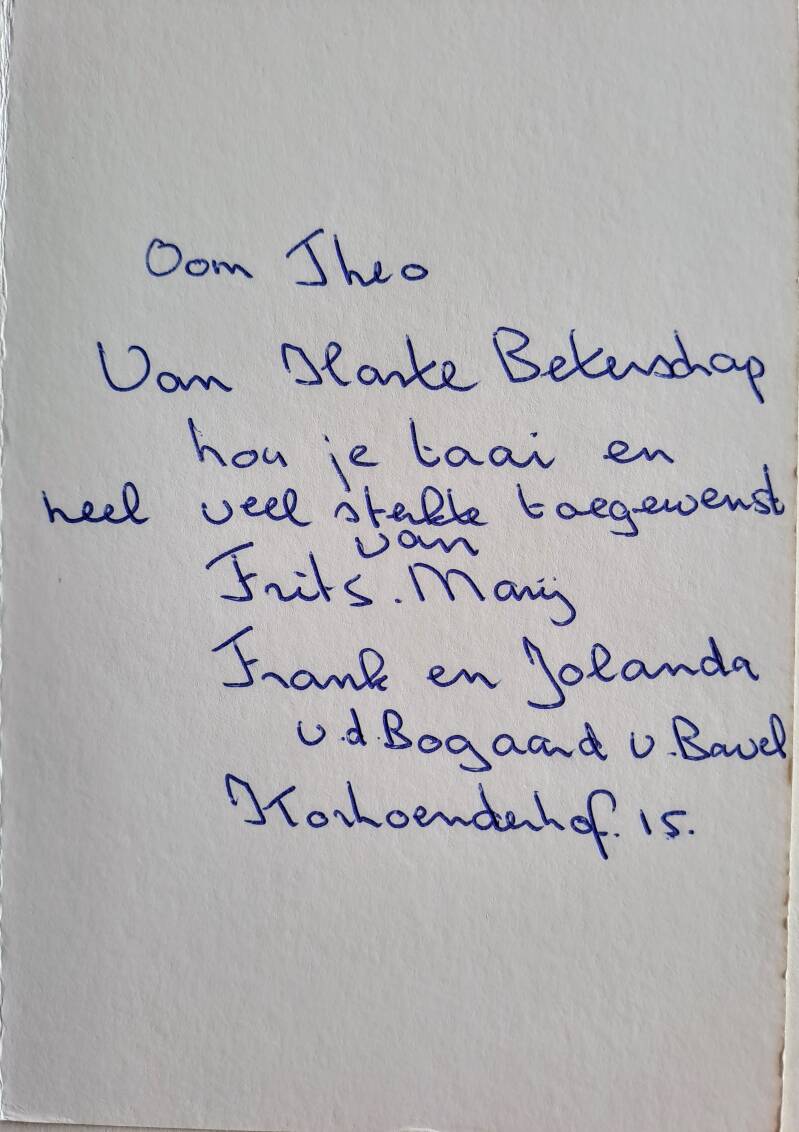 Oom Theo
Van Harte Beterschap
hou je taai en
heel veel sterkte toegewenst
van
Frits. Marij
Frank en Jolanda
v.d. Bogaard v. Bavel
Korhoenderhof. 15.